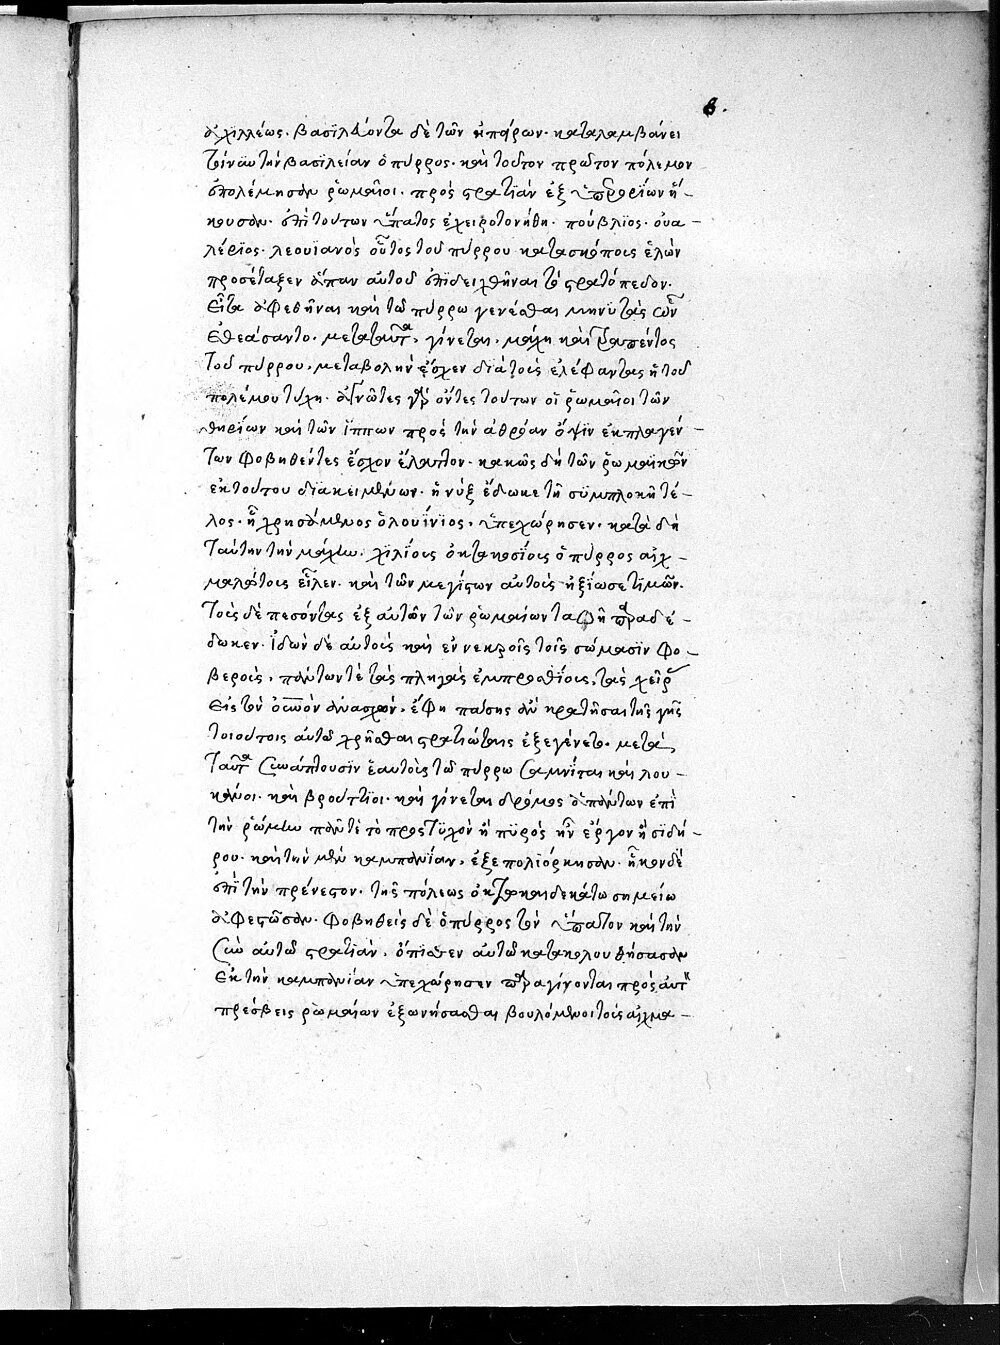 6.
ἀχιλλέως· βασιλεύοντα δὲ τῶν ἠπείρων· καταλαμβάνει
τὴν βασιλείαν ὁ πύρρος· καὶ τοῦτον πρῶτον πόλεμον
ἐπολέμησαν ῥωμαῖοι· πρὸς στρατιὰν ἐξ ὑπερορίων ἥ-
κουσαν· ἐπὶ τούτων ὕπατος ἐχειροτονήθη· πούβλϊος· οὐα-
λέριος· λεουϊανὸς οὗτος τοῦ πύρρου κατασκόπους ἑλὼν
προσέταξεν ἅπαν αὐτοῦ ἐπιδειχθῆναι τὸ στρατόπεδον·
εἶτα ἀφεθῆναι καὶ τῶ πύρρω γενέσθαι μηνῦτὰς ὧν
ἐθεάσαντο· μετὰ ταῦτα, γίνεται, μάχη καὶ τραπέντος
τοῦ πύρρου, μεταβολὴν ἔσχεν διὰ τοὺς ἐλέφαντας ἡ τοῦ
πολέμου τύχη· ἀγνῶτες γὰρ ὄντες τούτων οἱ ῥωμαῖοι τῶν
θηρίων καὶ τῶν ἵππων πρὸς τὴν ἀθρόαν ὄψϊν ἐκπλαγέν-
των φοβηθέντες ἔσχον ἔλαττον· κακῶς δὴ τῶν ῥωμαϊκῶν
ἐκ τούτου διακειμένων· ἡ νὺξ ἔδωκε τῆ συμπλοκῆ τέ-
λος· ἧ χρησάμενος ὁ λουΐνϊος, ὑπεχώρησεν· κατὰ δὴ
ταύτην τὴν μάχην, χϊλίους ὀκτακοσίους ὁ πύρρος αἰχ-
μαλώτους εἷλεν· καὶ τῶν μεγίστων αὐτοὺς ἠξίωσε τιμῶν·
τοὺς δὲ πεσόντας ἐξ αὐτῶν τῶν ῥωμαίων ταφῆ παραδέ-
δωκεν· ἰδὼν δὲ αὐτοὺς καὶ ἐν νεκροῖς τοῖς σώμασϊν φο-
βεροὺς, πάντων τὲ τὰς πληγὰς ἐμπροσθίους, τὰς χεῖρας
εἰς τὸν οὐρανὸν ἀνασχὼν, ἔφη πάσης ἂν κρατῆσαι τῆς γῆς
τοιούτοις αὐτῶ χρῆσθαι στρατιώταις ἐξεγένετο· μετὰ,
ταῦτα συνάπτουσϊν ἑαυτοὺς τῶ πύρρω σαμνῖται καὶ λου-
κανοι· καὶ βρουττϊοι· καὶ γίνεται δρόμος ἁπάντων ἐπὶ
τὴν ῥώμην πᾶν τὲ τὸ προστυχὸν ἢ πϋρὸς ἦν ἔργον ἢ σϊδή-
ρου· καὶ τὴν μὲν καμπανίαν, ἐξεπολιόρκησαν· ἧκον δὲ
ἐπὶ τὴν πρένεστον· τῆς πόλεως ὀκτωκαιδεκάτω σημείω
ἀφεστῶσαν· φοβηθεὶς δὲ ὁ πύρρος τὸν ὕπατον καὶ τὴν
σὺν αὐτῶ στρατιὰν, ὄπισθεν αὐτῶ κατακολουθήσασαν
εἰς τὴν καμπανίαν ὑπεχώρησεν παραγίνονται πρὸς αὐτὸν
πρέσβεις ῥωμαίων ἐξωνήσασθαι βουλόμενοι τοὺς αἰχμα-